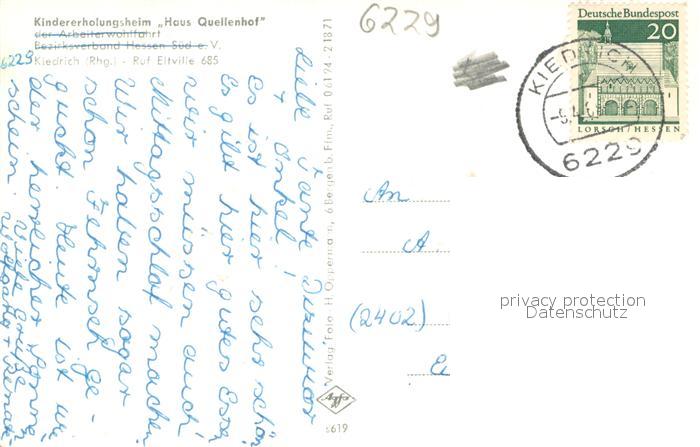 Kindererholungsheim „Haus Quellenhof"
der Arbeiterwohlfahrt
Bezirksverband Hessen Süd e. V.
Kiedrich (Rhg.) - Ruf Eltville 685
6229
6229
Deutsche Bundespost
20
LORSCH/HESSEN
KIEDRICH
6229
Liebe Tante
+ Onkel!
Es ist hier sehr schön
Es gibt hier gutes Essen
wir müssen auch
Mittagsschlaf machen
Wir haben sogar
schon Fernseh ge-
guckt. Heute ist wie
der herrlicher Sonnen
schein. Viele Grüße
Wolfgang + Renate
Verlag Foto H. Oppermann, 6 Bergen b. Ffm., Ruf 06194-21871
s619
An
(2402)
privacy protection
Datenschutz